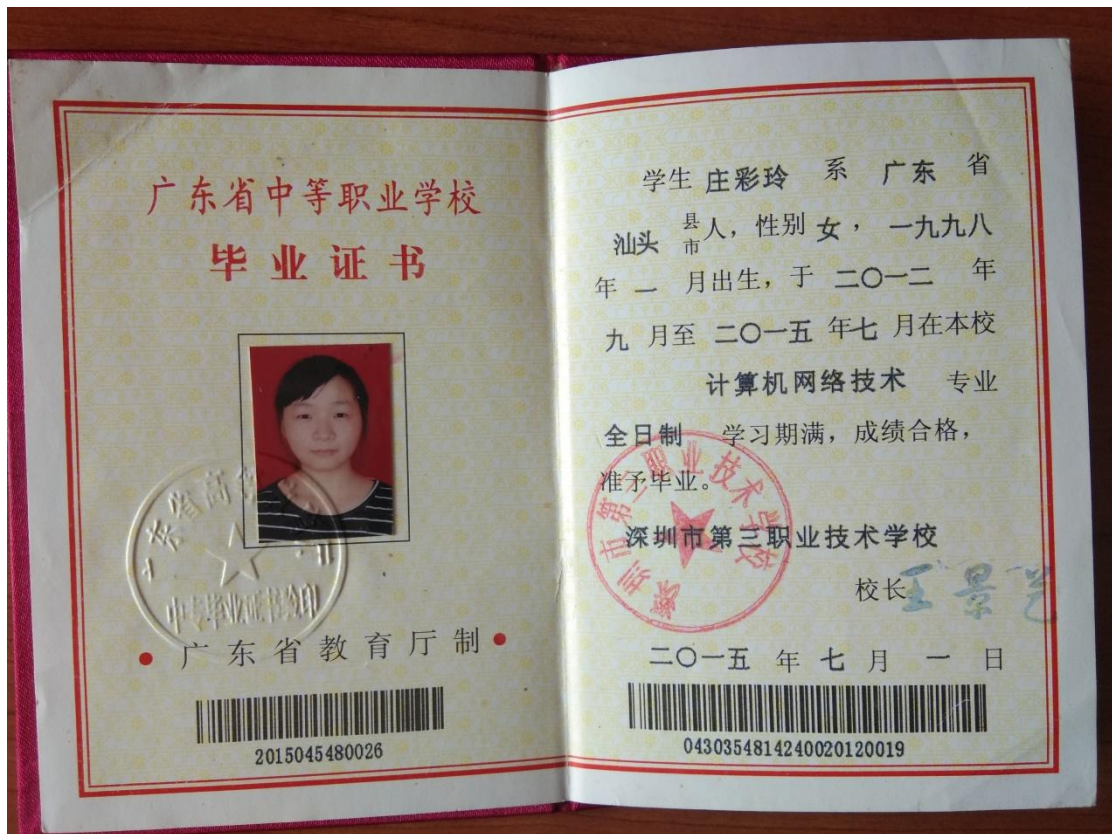 广东省中等职业学校
毕业证书
广东省高
中专毕业证书验印
广东省教育厅制
2015045480026
学生 庄彩玲 系 广东 省
汕头 县市人，性别 女， 一九九八
年 一 月出生，于 二〇一二 年
九 月至 二〇一五 年七 月在本校
计算机网络技术 专业
全日制 学习期满，成绩合格，
准予毕业。
深圳市第三职业技术学校
深圳市第三职业技术学校
校长 王景艺
二〇一五 年 七 月 一 日
0430354814240020120019